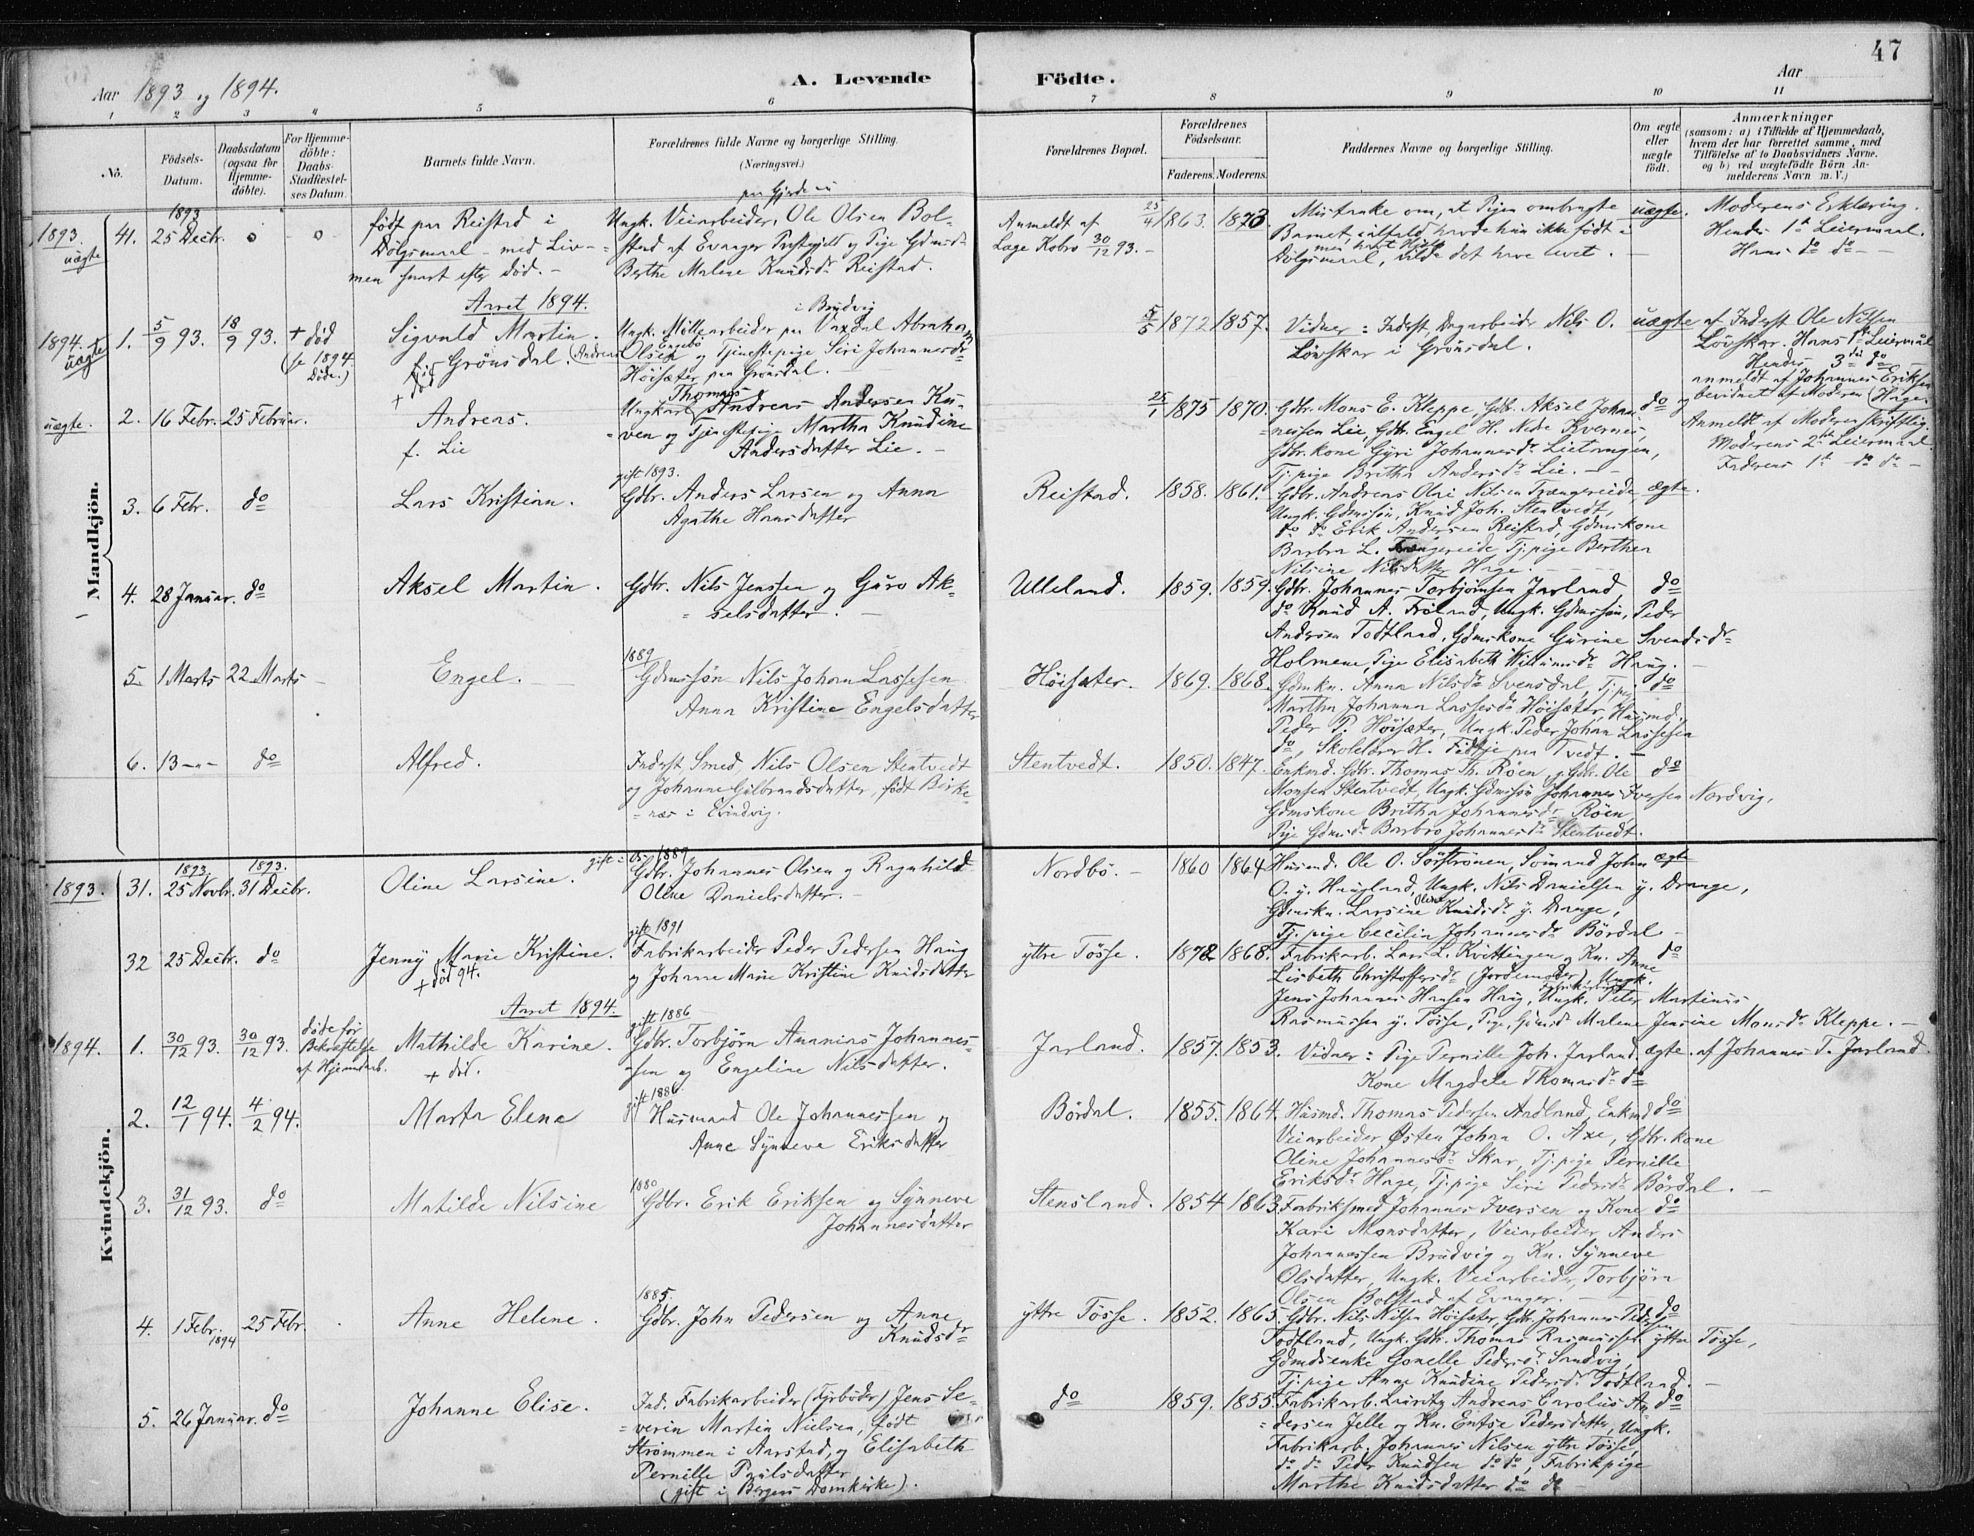 47
Aar 1893 og 1894.
A. Levende
Födte.
Aar
1 2 3 4 5 6 7 8 9 10 11
No.
Födsels-Datum.
Daabsdatum (ogsaa for Hjemme-döbte).
For Hjemme-döbte: Daabs-Stadfæstel-ses Datum.
Barnets fulde Navn.
Forældrenes fulde Navne og borgerlige Stilling. (Næringsvei.)
Forældrenes Bopæl.
Forældrenes Födselsaar.
Faderens. Moderens.
Faddernes Navne og borgerlige Stilling.
Om ægte eller uægte födt.
Anmærkninger
(saasom: a) i Tilfælde af Hjemmedaab, hvem der har forrettet samme, med Tilföielse af to Daabsvidners Navne, og b) ved uægtefödte Börn An-melderens Navn m. V.)
Mandkjön.
1893. uægte
41. 1893 25 Decbr. o - o -
født paa Reistad i
Dølgsmaal - med Liv -
men snart efter død. -
Ungk. Veiarbeider, Ole Olsen Bol-
stad af Evanger Præstegjeld og Pige Gdmds.
Berthe Malene Knudsdr Reistad.
Anmeldt af
Lage Kobro 30/12 93. -
25/4 1863. 1873
Mistanke om, at Pigen ombragte
Barnet, ialfald, havde hun ikke født i
Dølgsmaal, vilde det have levet. -
uægte.
Moderens Erklæring.
Hendes 1ste Leiermaal.
Hans do do -
Aaret 1894.
1894. uægte
1. 5/9 93. 18/9 93. + død (se 1894. Døde.)
Sigvald Martin
f. Grønsdal. (Andreas
+ død
i Brudvig
Ungk. Møllearbeider paa Vaxdal Abraham
Olsen og Tjenestepige Siri Johannesdr
Høisæter paa Grønsdal.
5/5 1872 1857.
Vidner: Inderst Dagarbeider Nils O.
Løvskar i Grønsdal.
uægte
af Inderst Ole Nilsen
Løvskar. Hans 1ste Leiermål
Hendes 3die do
anmeldt af Johannes Eriksen
og bevidnet af Moderen (Hage.
uægte.
2. 16 Febr. 25 Februar.
Andreas.
f. Lie
Thomas
Ungkarl Andreas Andersen Ku-
ven og Tjenestepige Martha Knudine
Andersdatter Lie. -
25/1 1875 1870.
Gbr. Mons E. Kleppe, Gbr. Aksel Johan-
nessen Lie, Gbr. Engel H. Nedre Kvernes,
Gbr. kone Gyri Johannesdr Lietrængen,
Tj. pige Britha Andersdr Lie. -
do
Anmeldt af Moderen skriftlig.
Moderens 2det Leiermaal
Faderens 1ste do do -
3. 6 Febr. do
Lars Kristian.
gift 1893.
Gbr. Anders Larsen og Anna
Agathe Hansdatter
Reistad. 1858. 1861.
Gbr. Andreas Olai Nilsen Trængereide
Ungk. Gdmssøn, Knud Joh. Stentvedt,
do do Erik Andersen Reistad, Gdmskone
Barbra L. Trængereide Tj. pige Berthea
Nilsine Nilsdatter Hage.
ægte.
4. 28 Januar. do
Aksel Martin.
Gbr. Nils Jenssen og Guro Ak-
selsdatter.
Ulleland. 1859. 1859.
Gbr. Johannes Torbjørnsen Jarland
do Knud A. Frøland, Ungk. Gdmssøn, Peder
Andersen Todtland, Gdmskone Gurine Svendsdr
Holmene, Pige Elisabeth Haug. -
do
5. 1 Marts 22 Marts -
Engel. -
1889
Gdmssøn Nils Johan Lassesen
Anna Kristine Engelsdatter
Høisæter. 1869. 1868.
Gdmkn. Anna Nilsdr Svensdal, Tj. pig.
Martha Johanna Lassesdr Høisæter, Husmd.
Peder P. Høisæter, Ungk. Peder Johan Lassesen
do, Skolelærer H. Fidtje paa Tvedt. -
do
6. 13 - " - do
Alfred.
Inderst Smed, Nils Olsen Stentvedt
og Johanne Gulbrandsdatter, født Birke-
næs i Evindvig.
Stentvedt. 1850. 1847.
Enkmd. Gbr. Thomas Th. Røen, Gbr. Ole
Monsen Stentvedt, Ungk. Gdmssøn Johannes Iversen Nordvig,
Gdmskone Britha Johannesdr Røen,
Pige Gdmsdr Barbro Johannesdr Stentvedt.
do
Kvindekjön.
1893.
31. 1893. 25 Novbr. 1893. 31 Decbr.
Oline Larsine.
gift i Os 1889
Gbr. Johannes Olsen og Ragnhild
Oline Danielsdatter. -
Nordbø. - 1860 1864
Husmd. Ole O. Sørstrønen, Sømand John
O. y. Haugland, Ungk. Nils Danielsen y. Drange,
Gdmskn. Larsine Oline Knudsdr y. Drange,
Tj. pige Cecilia Johannesdr Børdal -
ægte
32 25 Decbr. do
Jenny Marie Kristine.
+ død 94.
gift 1891
Fabrikarbeider Peder Pedersen Haug
og Johanne Marie Kristine Knudsdatter
yttre Tøsse. 1872 1868.
Fabrikarb. Lars L. Kvittingen og Kn. Anne
Lisbeth Christoffersdr (Jordemoder), Ungk.
Jens Johannes Hansen Haug, Ungk. Peter Martinus
Rasmussen y. Tøsse, Pige, Gdmsdr Malene Jensine Monsdr Kleppe. -
do
Aaret 1894.
1894.
1. 30/12 93. 30/12 93. døde før Bekræftelse af Hjemdaab.
Mathilde Karine.
+ død.
gift 1886
Gbr. Torbjørn Ananias Johannes-
sen og Engeline Nilsdatter.
Jarland. 1857. 1853.
Vidner: Pige Pernille Joh. Jarland
Kone Magdele Thomasdr do
ægte. af Johannes T. Jarland.
2. 12/1 94. 4/2 94.
Marta Elene
gift 1886.
Husmand Ole Johannessen og
Anne Synneve Eriksdatter
Børdal. 1855. 1864.
Husmd. Thomas Pedersen Aadland, Enkmd
Veiarbeider Østen Johan O. Axe, Gbr. kone
Oline Johannesdr Skar, Tj. pige Pernille
Eriksdr Hage, Tj. pige Siri Pedersdr Børdal. -
do
3. 31/12 93. do
Matilde Nilsine
1880
Gbr. Erik Eriksen og Synneve
Johannesdatter
Stensland. 1854 1863.
Fabriksmed Johannes Iversen og Kone
Kari Monsdatter, Veiarbeider Anders
Johannessen Brudvig og Kn. Synneve
Olsdatter, Ungk. Veiarbeider, Torbjørn
Olsen Bolstad af Evanger. -
do
4. 1 Febr. 1894 25 Febr.
Anne Helene.
1885.
Gbr. John Pedersen og Anne
Knudsdr
yttre Tøsse. 1852. 1865.
Gbr. Nils Nilsen Høisæter, Gbr. Johannes Pedersen
Todtland, Ungk. Gbr. Thomas Rasmussen yttre Tøsse,
Gdmdsenke Gonelle Pedersdr Sandvig,
Tj. pige Anne Knudine Pedersdr Todtland. -
do
5. 26 Januar. do
Johanne Elise.
Ind. Fabrikarbeider (Fyrbøder) Jens Se-
verin Martin Nielsen, født
Strømmen i Aarstad, og Elisabeth
Pernille Paulsdatter
(gift i Bergens Domkirke).
do 1859. 1855.
Fabrikarb. Lauritz Andreas Carolius An-
dersen Jelle og Kn. Pedersdatter, Ungk.
Fabrikarb. Johannes Nilsen yttre Tøsse,
do do Peder Knudsen do do, Fabrikpige
Marthe Knudsdatter do do -
do